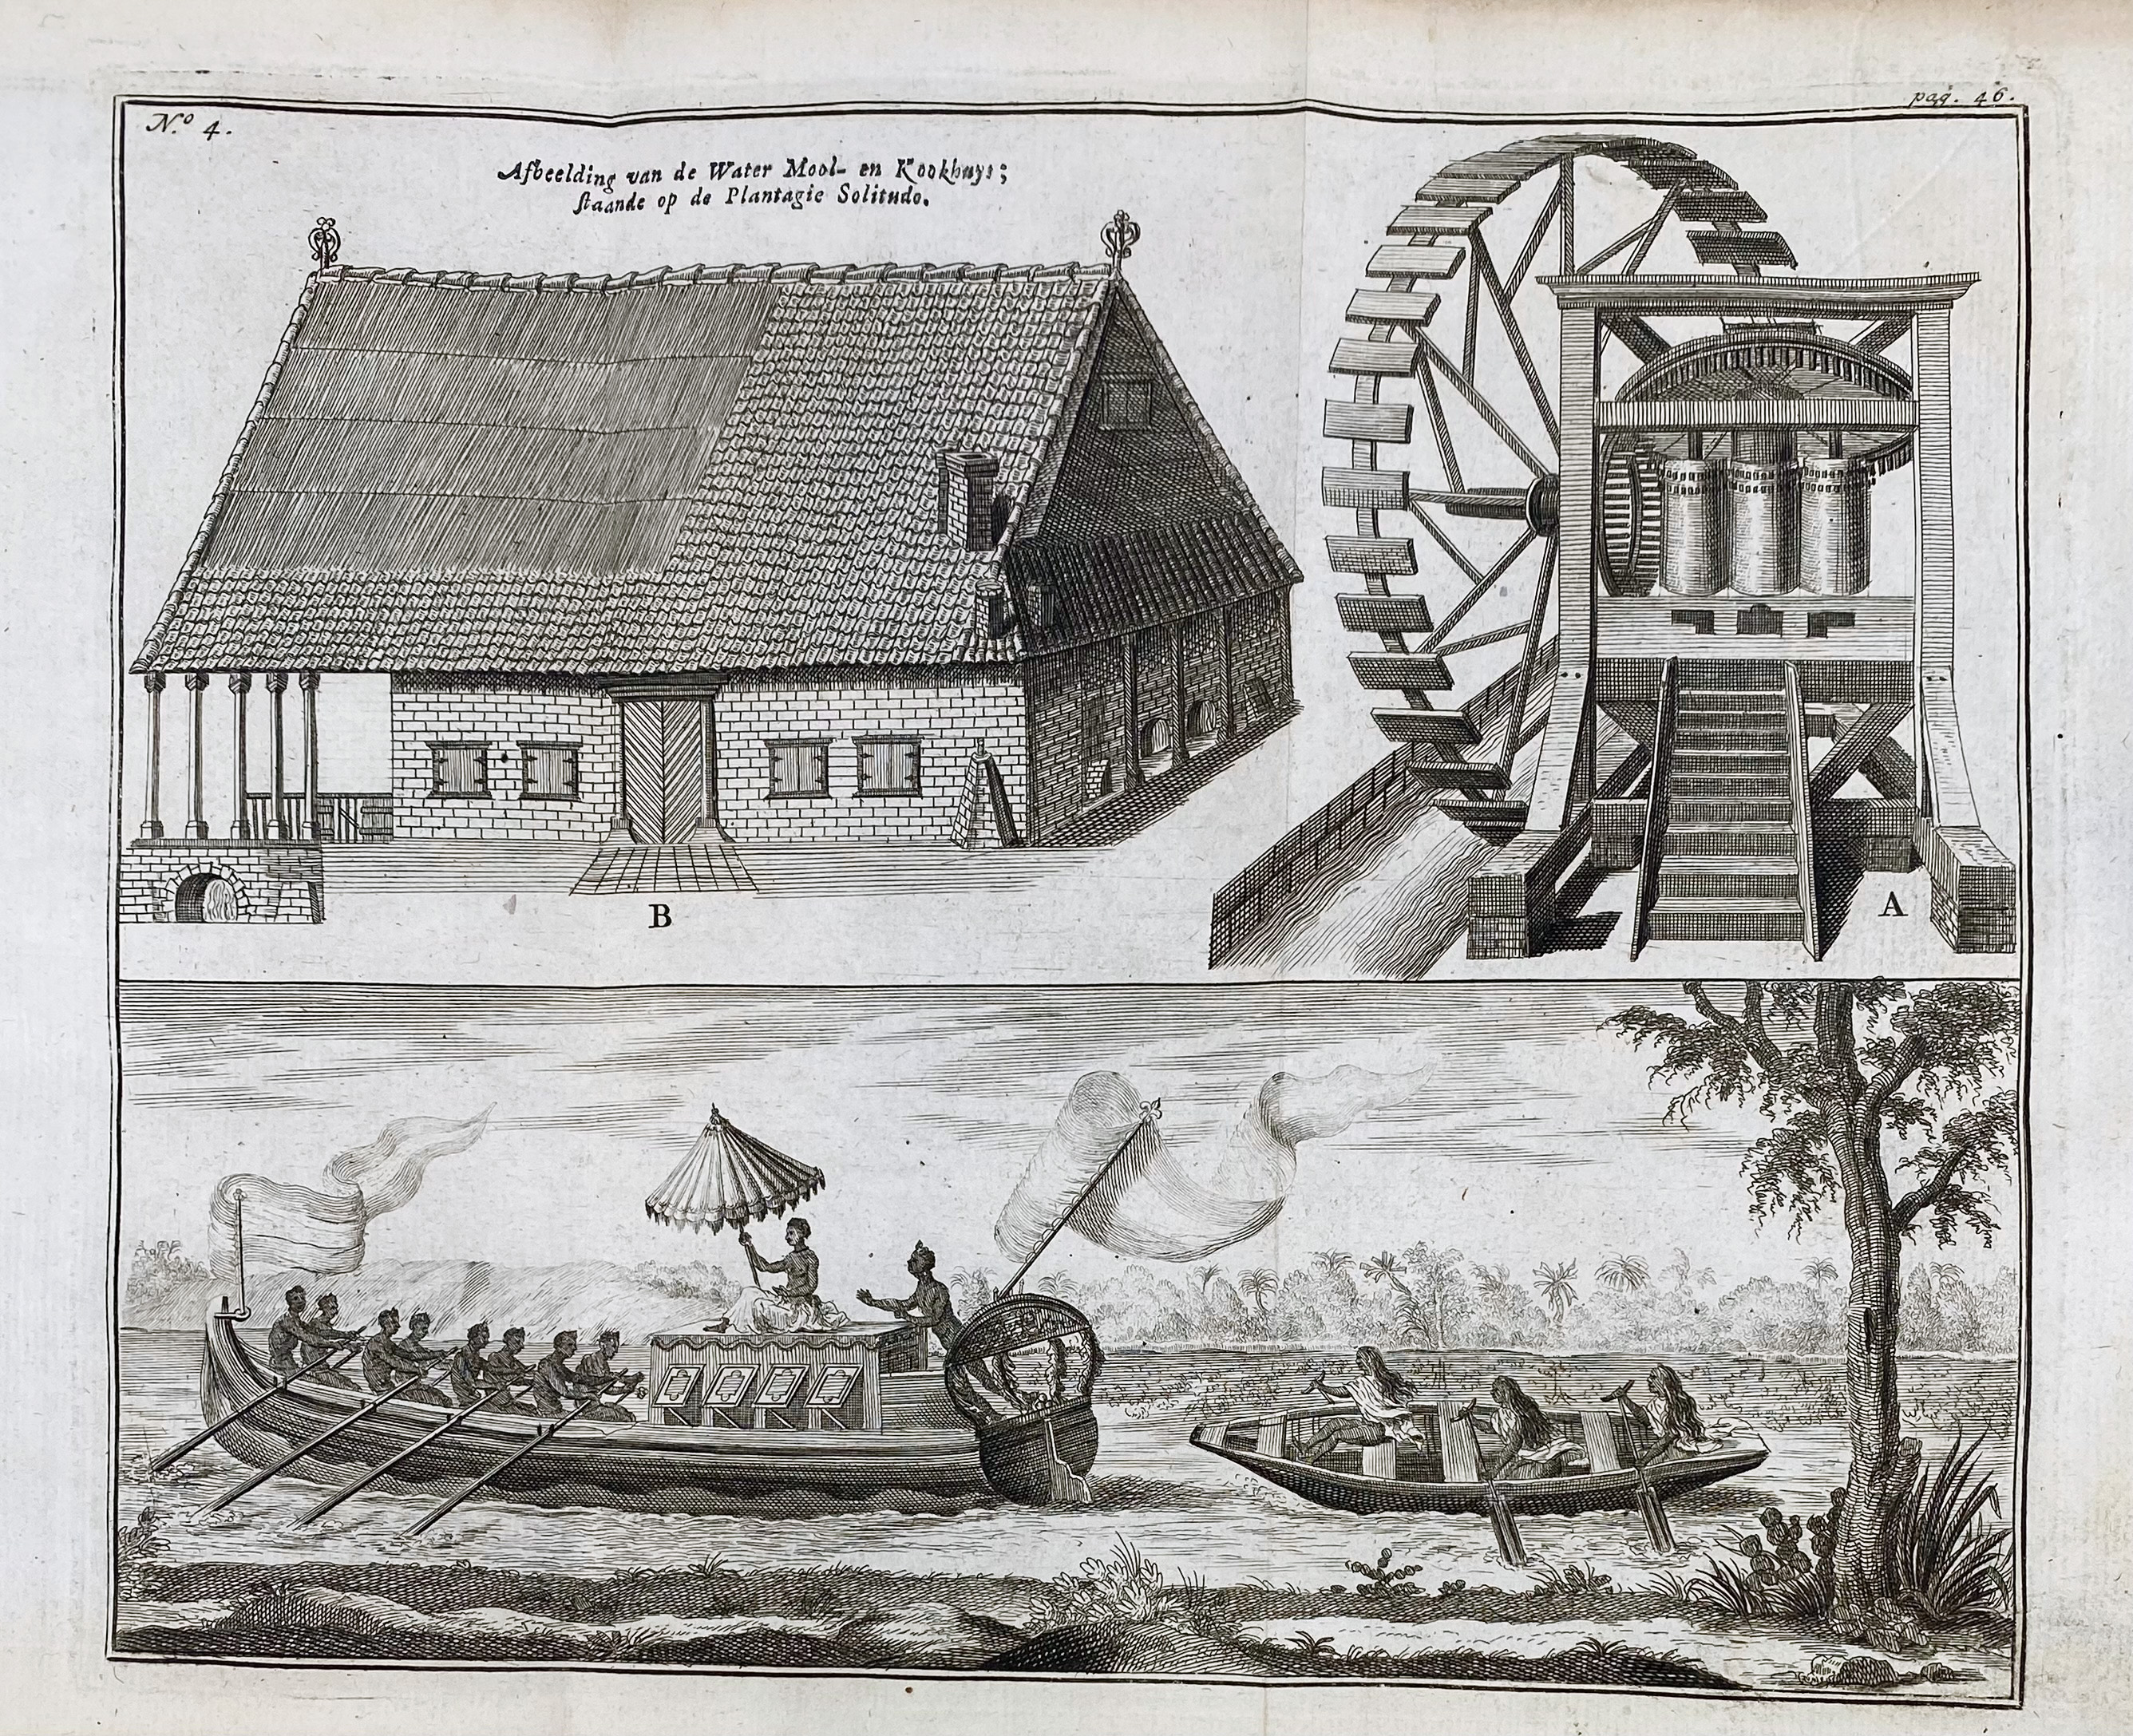 N.º 4.
pag. 46.
Afbeelding van de Water Mool- en Kookhuys;
staande op de Plantagie Solitudo.
B
A